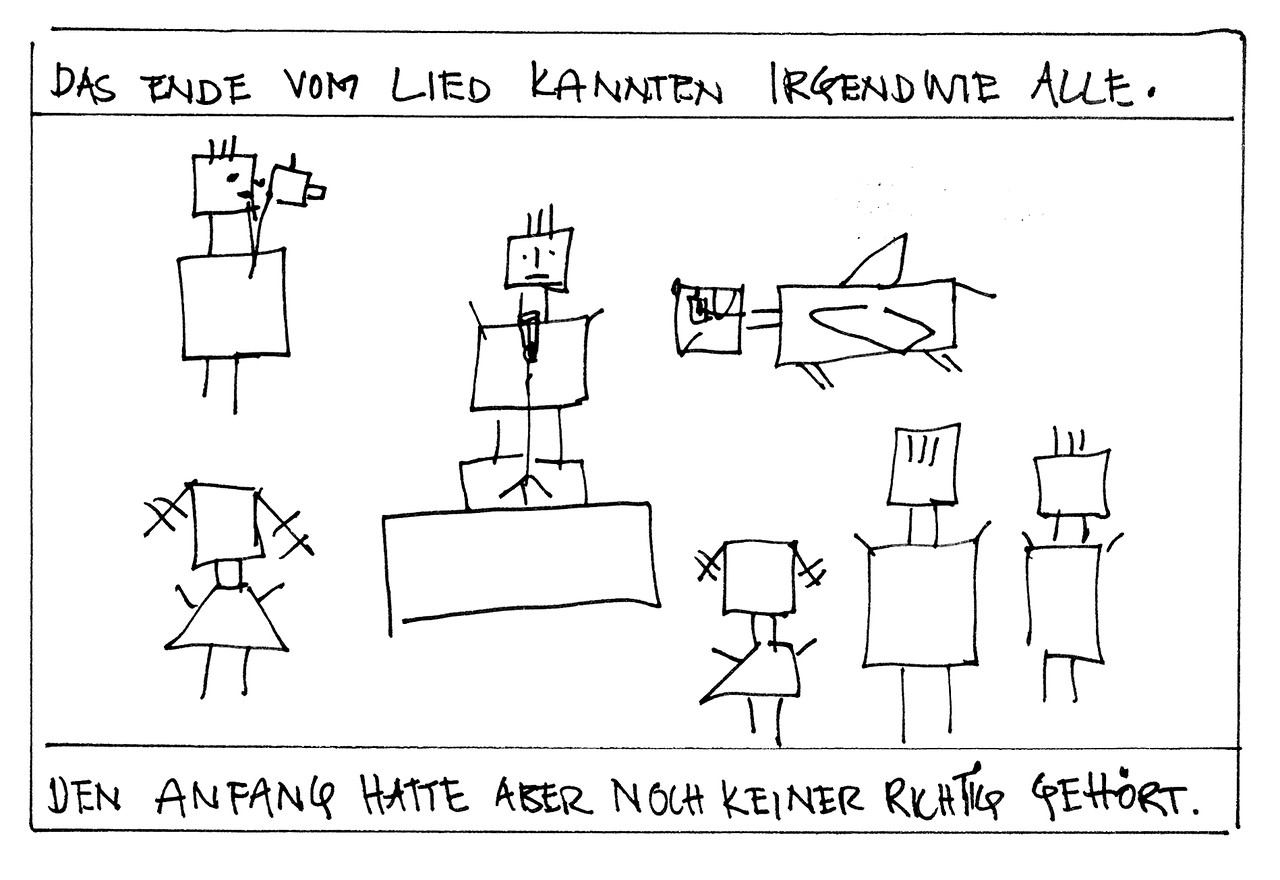 DAS ENDE VOM LIED KANNTEN IRGENDWIE ALLE.
DEN ANFANG HATTE ABER NOCH KEINER RICHTIG GEHÖRT.